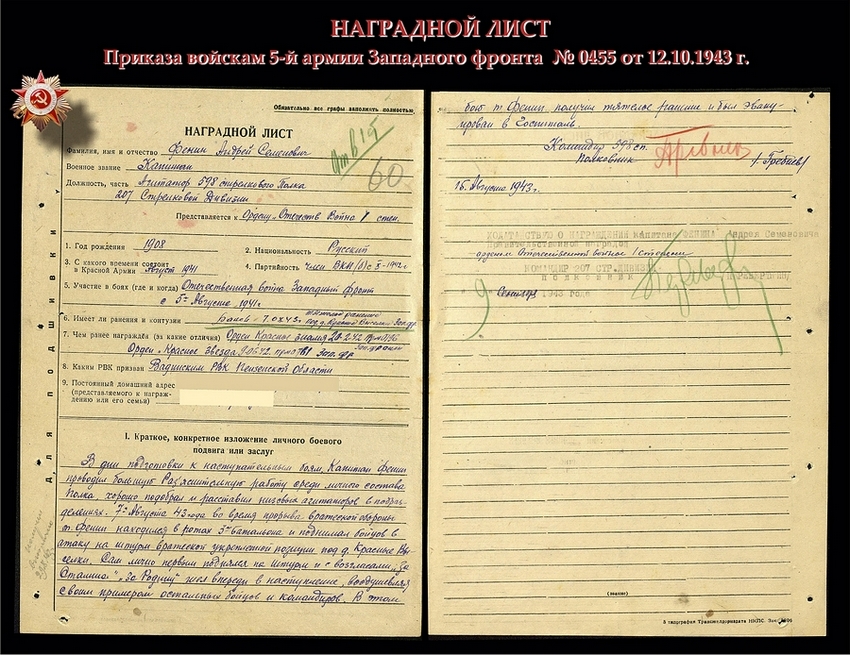 НАГРАДНОЙ ЛИСТ
Приказа войскам 5-й армии Западного фронта № 0455 от 12.10.1943 г.
Обязательно все графы заполнять полностью
НАГРАДНОЙ ЛИСТ
Фамилия, имя и отчество Фенин Андрей Семенович
Военное звание Капитан
60
Должность, часть Агитатор 598 стрелкового Полка
207 Стрелковой Дивизии
Представляется к Ордену „Отечеств Война I степ.
1. Год рождения 1908
2. Национальность Русский
3. С какого времени состоит
в Красной Армии Август 1941
4. Партийность член ВКП(б) с X-1942г
5. Участие в боях (где и когда) Отечественная война Западный фронт
с 5го Августа 1941г.
6. Имеет ли ранения и контузии
7. Чем ранее награждён (за какие отличия) Орден Красное знамя
Орден „Красное Звезда
8. Каким РВК призван Вадинским РВК Пензенской Области
9. Постоянный домашний адрес
(представляемого к награж-
дению или его семьи)
I. Краткое, конкретное изложение личного боевого
подвига или заслуг
В дни подготовки к наступательным боям, Капитан Фенин
проводил большую Раз'яснительную работу среди личного состава
Полка хорошо подобрал и расставил низовых агитаторов в подраз-
делениях. 7го Августа 43 года во время прорыва вражеской обороны
т. Фенин находился в ротах 3го батальона и поднимал бойцов в
атаку на штурм вражеской укрепленной позиции под д. Красные Вы-
селки. Сам лично первым поднялся на штурм и с возгласами „За
Сталина" „За Родину" шел впереди в наступление, воодушевляя
своим примером остальных бойцов и командиров. В этом
для подшивки
бою т. Фенин получил тяжелое ранение и был эваку-
ирован в Госпиталь.
Командир 598 сп.
Полковник
16 Августа 1943г.
ХОДАТАЙСТВУЮ О НАГРАЖДЕНИИ Капитана ФЕНИНА Андрея Семеновича
правительственной наградой
орденом Отечественной войны I степени
КОМАНДИР 207 СТР. ДИВИЗИИ
ПОЛКОВНИК
9 Сентября 1943 года
(звание)